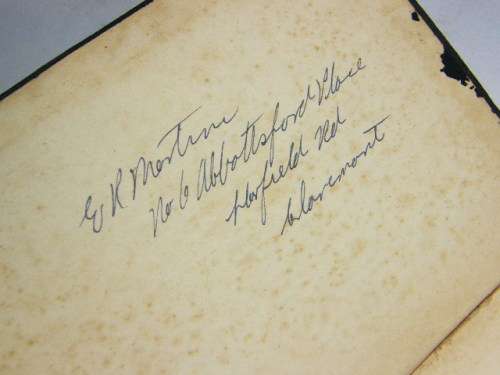 E R Martin
No 6 Abbottsford Place
Harfield Rd
Claremont